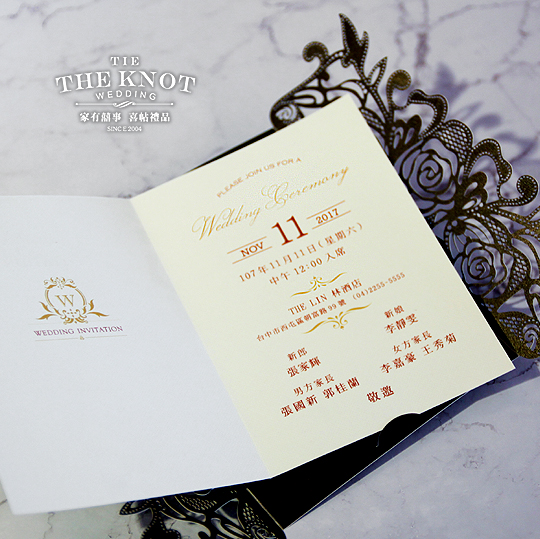 TIE
THE KNOT
WEDDING
家有囍事 喜帖禮品
SINCE 2004
W
WEDDING INVITATION
PLEASE JOIN US FOR A
Wedding Ceremony
NOV 11 2017
107年11月11日(星期六)
中午 12:00 入席
THE LIN 林酒店
台中市西屯區朝富路99號 (04)2255-5555
新郎
張家輝
新娘
李靜雯
男方家長
張國新 郭桂蘭
女方家長
李嘉豪 王秀菊
敬邀